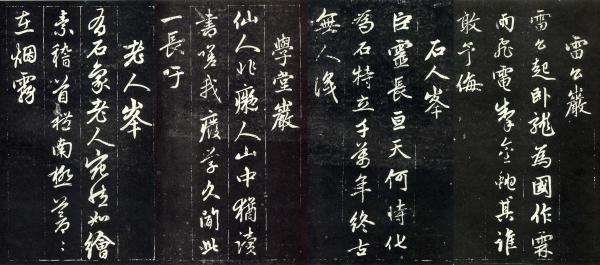 雷公巖
雷公起卧龍為國作霖
雨飛電掣金蛇其誰
敢予侮
石人峯
巨靈長亘天何時化
為石特立千萬年終古
無人識
學堂巖
仙人非癡人山中猶讀
書嗟我廢學久聞此
一長吁
老人峯
有石象老人宛然如繪
素稽首祝南極蒼〻
在烟霧